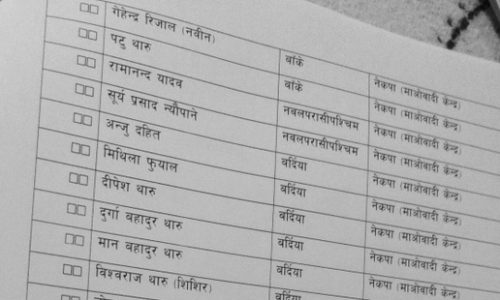 □□ गेहेन्द्र रिजाल (नवीन) बाँके नेकपा (माओवादी केन्द्र)
□□ पटु थारु बाँके नेकपा (माओवादी केन्द्र)
□□ रामानन्द यादव नवलपरासीपश्चिम नेकपा (माओवादी केन्द्र)
□□ सूर्य प्रसाद न्यौपाने नवलपरासीपश्चिम नेकपा (माओवादी केन्द्र)
□□ अन्जु दहित बर्दिया नेकपा (माओवादी केन्द्र)
□□ मिथिला फुयाल बर्दिया नेकपा (माओवादी केन्द्र)
□□ दीपेश थारु बर्दिया नेकपा (माओवादी केन्द्र)
□□ दुर्गा बहादुर थारु बर्दिया नेकपा (माओवादी केन्द्र)
□□ मान बहादुर थारु बर्दिया नेकपा (माओवादी केन्द्र)
□□ विश्वराज थारु (शिशिर) बर्दिया